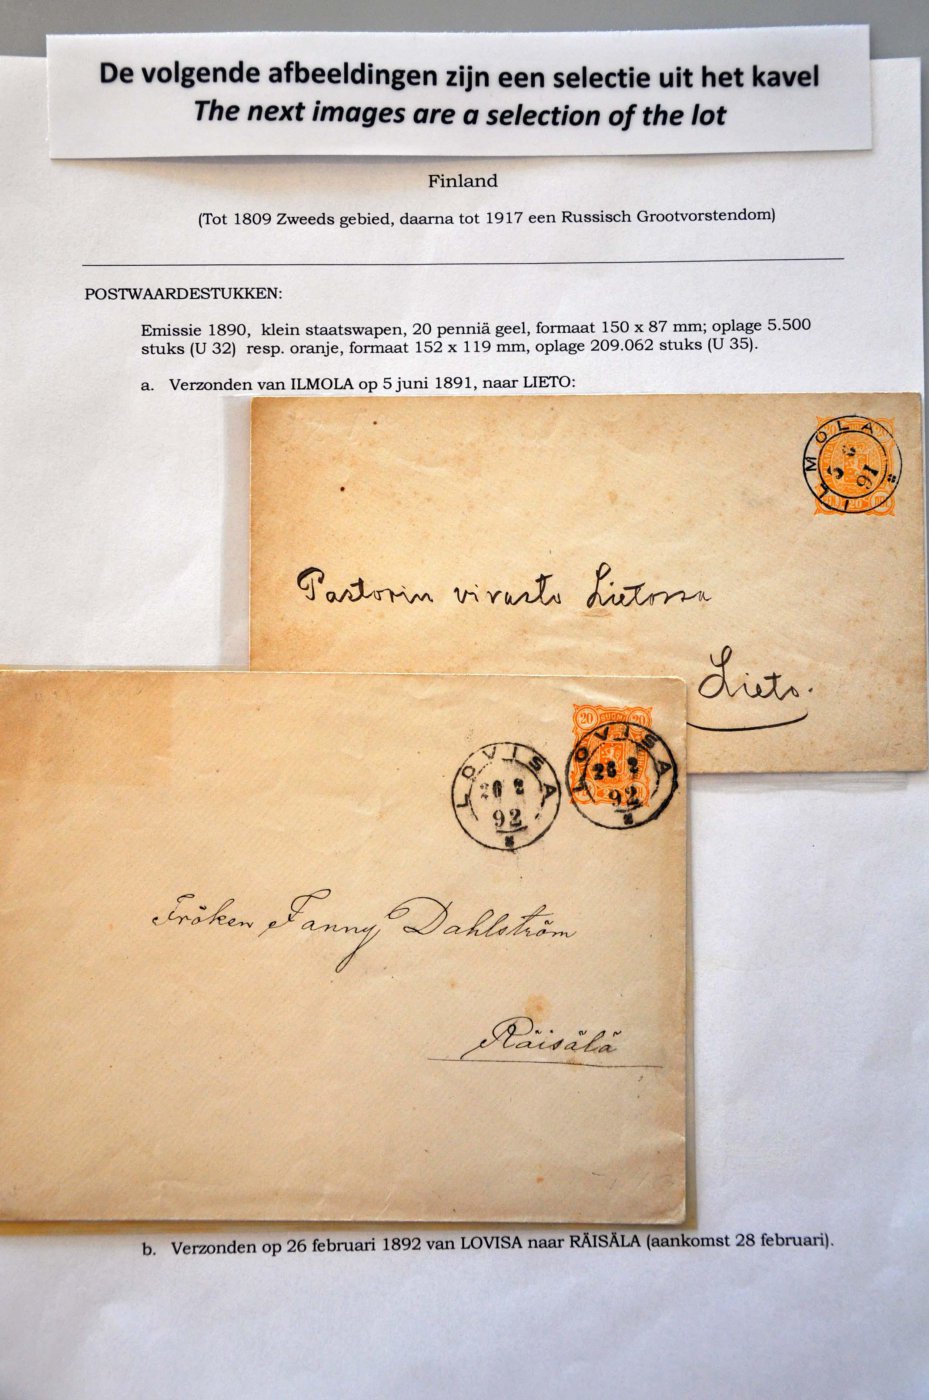 De volgende afbeeldingen zijn een selectie uit het kavel
The next images are a selection of the lot
Finland
(Tot 1809 Zweeds gebied, daarna tot 1917 een Russisch Grootvorstendom)
POSTWAARDESTUKKEN:
Emissie 1890, klein staatswapen, 20 penniä geel, formaat 150 x 87 mm; oplage 5.500
stuks (U 32) resp. oranje, formaat 152 x 119 mm, oplage 209.062 stuks (U 35).
a. Verzonden van ILMOLA op 5 juni 1891, naar LIETO:
ILMOLA
91
Pastorin virasto Lietossa
Lieto.
20 SUOMI 20
LOVISA
26 2
92
LOVISA
26 2
92
Fröken Fanny Dahlström
Räisälä
b. Verzonden op 26 februari 1892 van LOVISA naar RÄISÄLA (aankomst 28 februari).